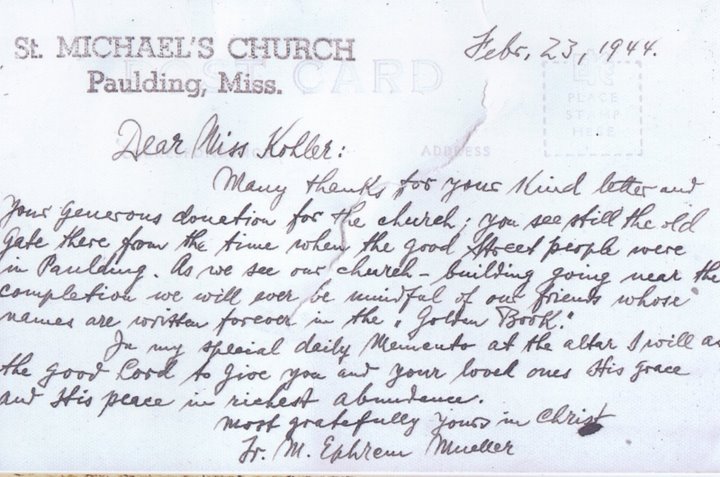 St. MICHAEL'S CHURCH
Paulding, Miss.
Febr. 23, 1944.
POST CARD
PLACE
STAMP
HERE
ADDRESS
Dear Miss Kohler:
Many thanks for your kind letter and
your generous donation for the church; you see still the old
gate there from the time when the good Street people were
in Paulding. As we see our church-building going near the
completion we will ever be mindful of our friends whose
names are written forever in the „Golden Book."
In my special daily Memento at the altar I will as
the good Lord to give you and your loved ones His grace
and His peace in richest abundance.
most gratefully yours in Christ
Fr. M. Ephrem Mueller